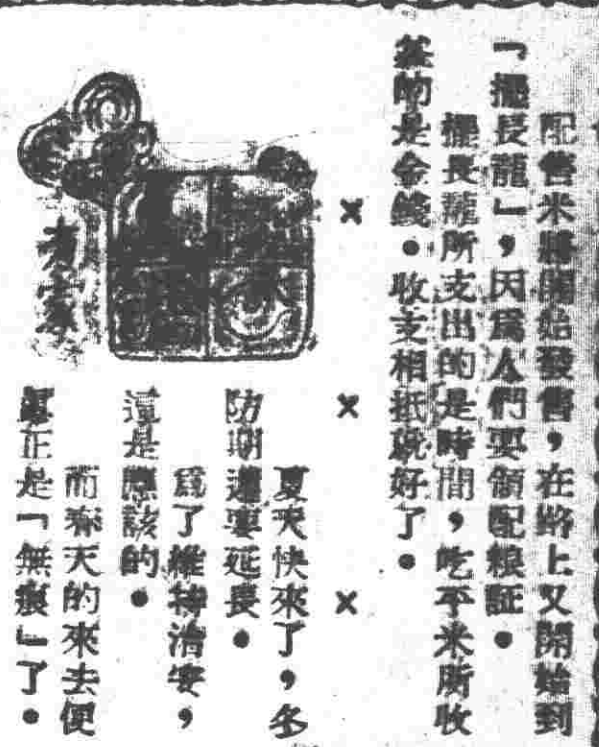 配售米將開始發售，在路上又開始到
「擺長龍」，因爲人們要領配粮証。
擺長龍所支出的是時間，吃平米所收
益的是金錢。收支相抵就好了。
× × ×
夏天快來了，冬
防期還要延長。
爲了維持治安，
這是應該的。
而春天的來去便
眞正是「無痕」了。